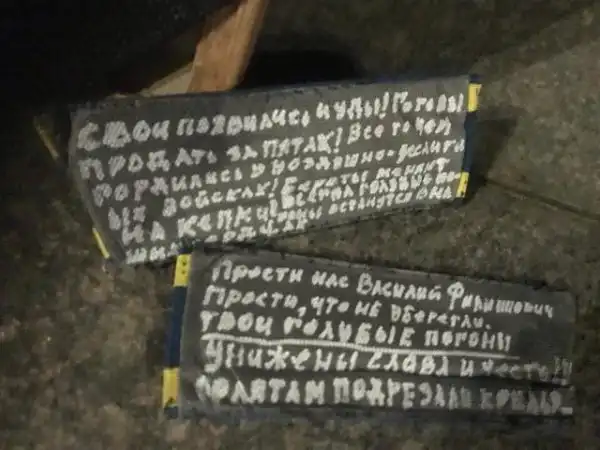 СВОИ ПОЯВИЛИСЬ ИУДЫ! ГОТОВЫ
ПРОДАТЬ ЗА ПЯТАК! ВСЕ ТО ЧЕМ
ГОРДИЛИСЬ В ВОЗДУШНО-
ЫХ ВОЙСКАХ! БЕРЕТЫ МЕНЯЮТ
НА КЕПКИ! ГОЛУБЫЕ
ОСТАНУТСЯ
Прости нас Василий Филиппович
Прости, что не уберегли.
ТВОИ ГОЛУБЫЕ ПОГОНЫ
УНИЖЕНЫ СЛАВА И ЧЕСТЬ!!
ПОДРЕЗАЛИ КРЫЛЬЯ